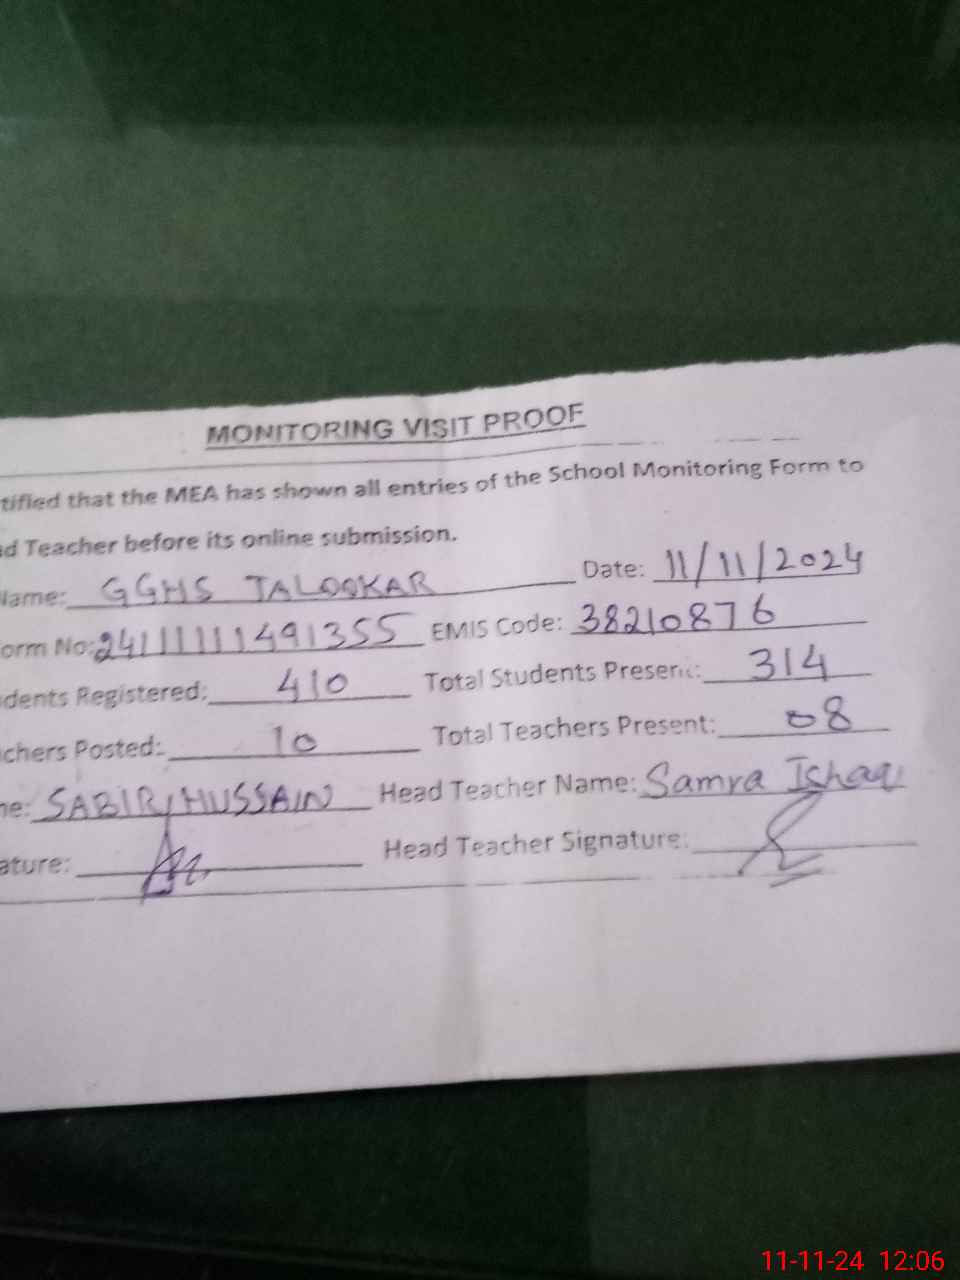 MONITORING VISIT PROOF
tified that the MEA has shown all entries of the School Monitoring Form to
ad Teacher before its online submission.
Name: GGHS TALOOKAR Date: 11/11/2024
orm No: 24111111491355 EMIS Code: 38210876
dents Registered: 410 Total Students Present: 314
chers Posted: 10 Total Teachers Present: 08
ne: SABIR HUSSAIN Head Teacher Name: Samra Ishaq
ature: Head Teacher Signature:
11-11-24 12:06